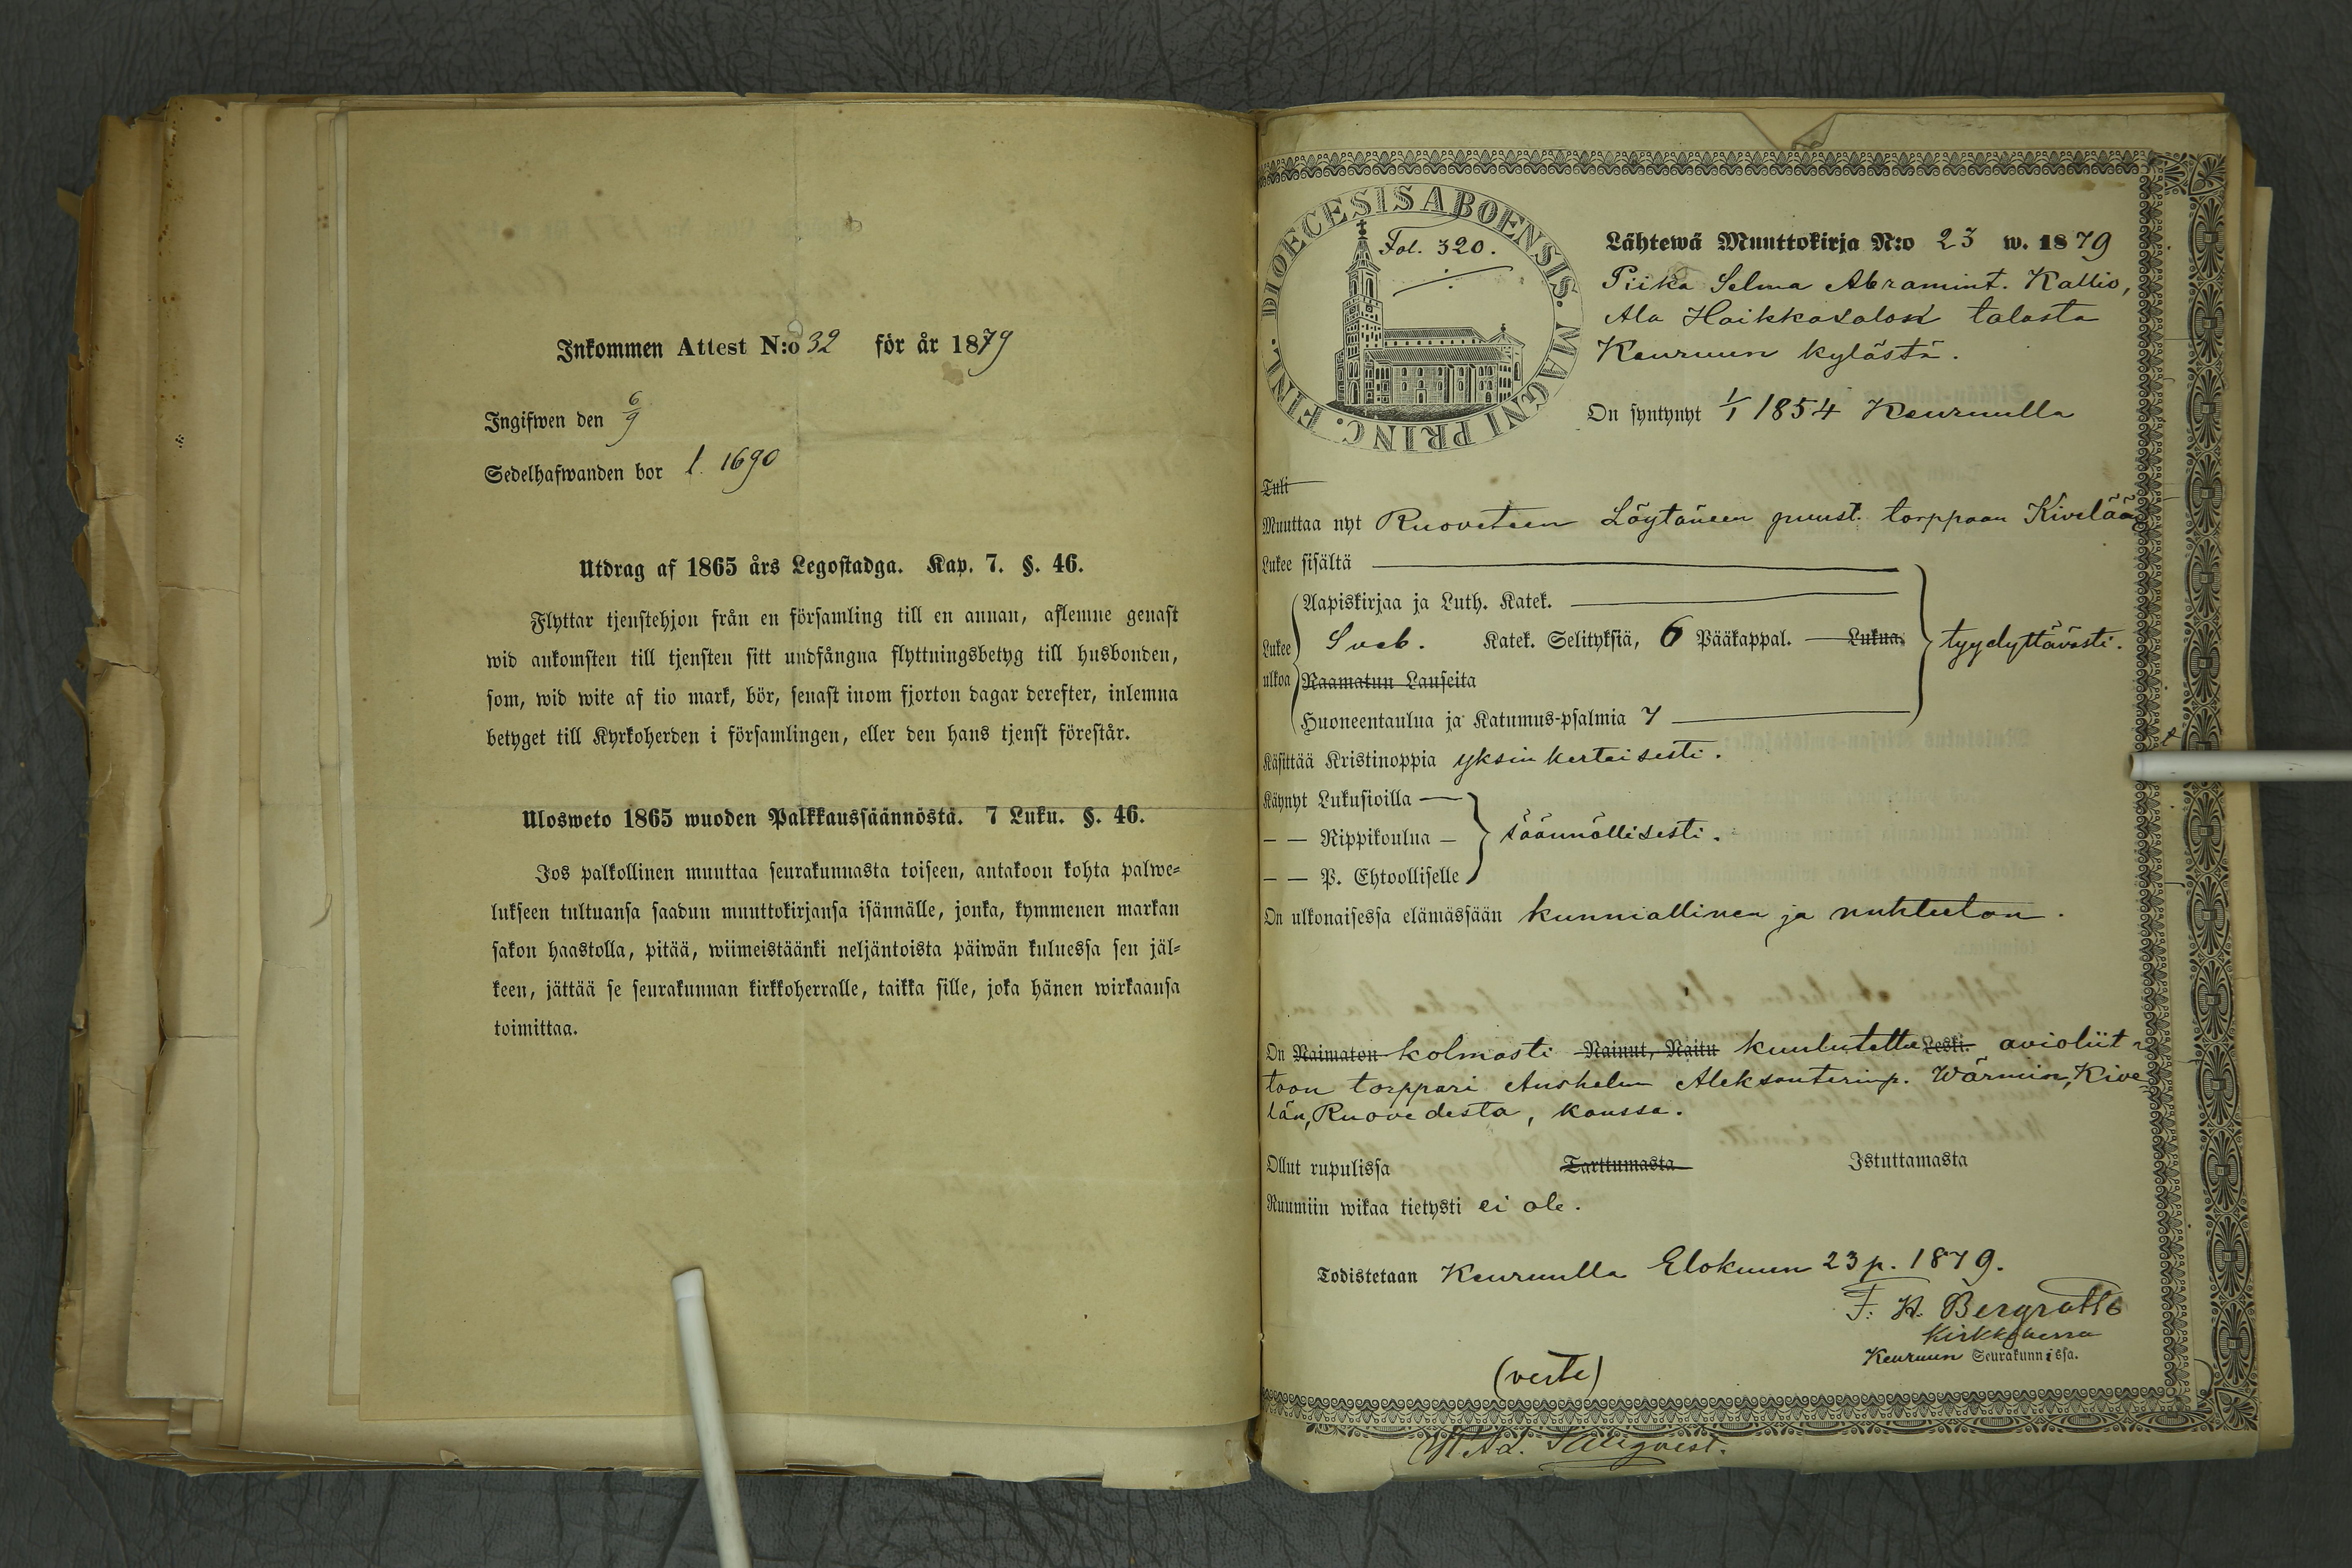 Inkommen Attest N:o 32 för år 1879
Ingifwen den 6/9
Sedelhafwanden bor l. 1690
Utdrag af 1865 års Legostadga. Kap. 7. §. 46.
Flyttar tjenstehjon från en församling till en annan, aflemne genast
wid ankomsten till tjensten sitt undfångna flyttningsbetyg till husbonden,
som, wid wite af tio mark, bör, senast inom fjorton dagar derefter, inlemna
betyget till Kyrkoherden i församlingen, eller den hans tjenst förestår.
Ulosweto 1865 wuoden Palkkaussäännöstä. 7 Luku. §. 46.
Jos palkollinen muuttaa seurakunnasta toiseen, antakoon kohta palwe-
lukseen tultuansa saadun muuttokirjansa isännälle, jonka, kymmenen markan
sakon haastolla, pitää, wiimeistäänki neljäntoista päiwän kuluessa sen jäl-
keen, jättää se seurakunnan kirkkoherralle, taikka sille, joka hänen wirkaansa
toimittaa.
DIOECESIS ABOENSIS. MAGNI PRINC. FINL.
Fol. 320.
Lähtewä Muuttokirja N:o 23 w. 1879
Piika Selma Abramint. Kallio,
Ala Haikkasalon talosta
Keuruun kylästä.
On syntynyt 1/1 1854 Keuruulla
Tuli
Muuttaa nyt Ruoveteen Löytäneen puust. torppaan Kivelään
Lukee sisältä
Aapiskirjaa ja Luth. Katek.
Lukee ulkoa Sveb. Katek. Selityksiä, 6 Pääkappal. Lukua. tyydyttävästi.
Raamatun Lauseita
Huoneentaulua ja Katumus-psalmia 7
Käsittää Kristinoppia yksinkertaisesti.
Käynyt Lukusioilla
— — Rippikoulua — säännöllisesti.
— — P. Ehtoolliselle
On ulkonaisessa elämässään kunniallinen ja nuhteeton.
On Naimaton kolmasti Nainut, Naitu kuulutettu Leski. avioliit-
toon torppari Anshelm Aleksanterinp. Wärmin, Kive
län, Ruovedestä, kanssa.
Ollut rupulissa Tarttumasta Istuttamasta
Ruumiin wikaa tietysti ei ole.
Todistetaan Keuruulla Elokuun 23 p. 1879.
F. H. Bergroth
Kirkkoherra
Keuruun Seurakunnissa.
(verte)